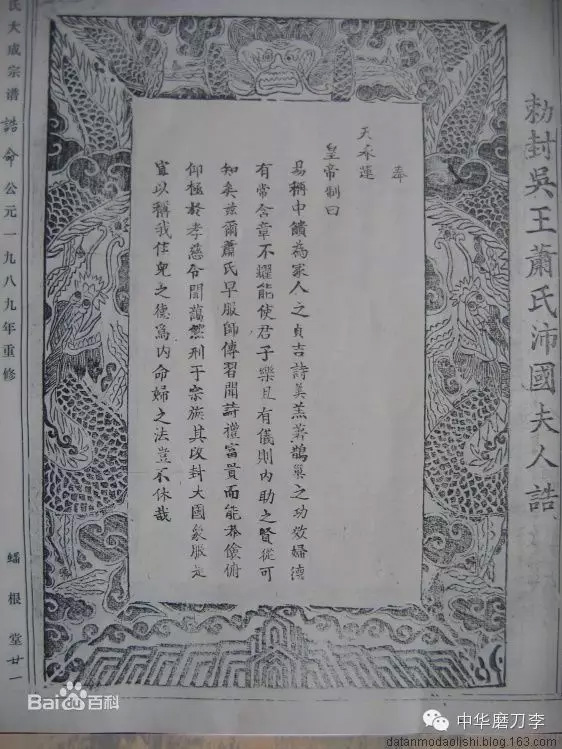 勑封吳王蕭氏沛國夫人誥
奉
天承運
皇帝制曰
易稱中饋為家人之貞吉詩美鵲巢之功效婦德
有常含章不耀能使君子樂且有儀則內助之賢從可
知矣茲爾蕭氏早服師傅習聞詩禮富貴而能恭儉俯
仰極於孝慈令聞藹然刑于宗族其改封大國象服是
宜以稱我之德為內命婦之法豈不休哉
氏大成宗谱 誥命 公元一九八九年重修 蟠根堂 廿一
Bai百科
中华磨刀李
datanmodaolishi.blog.163.com